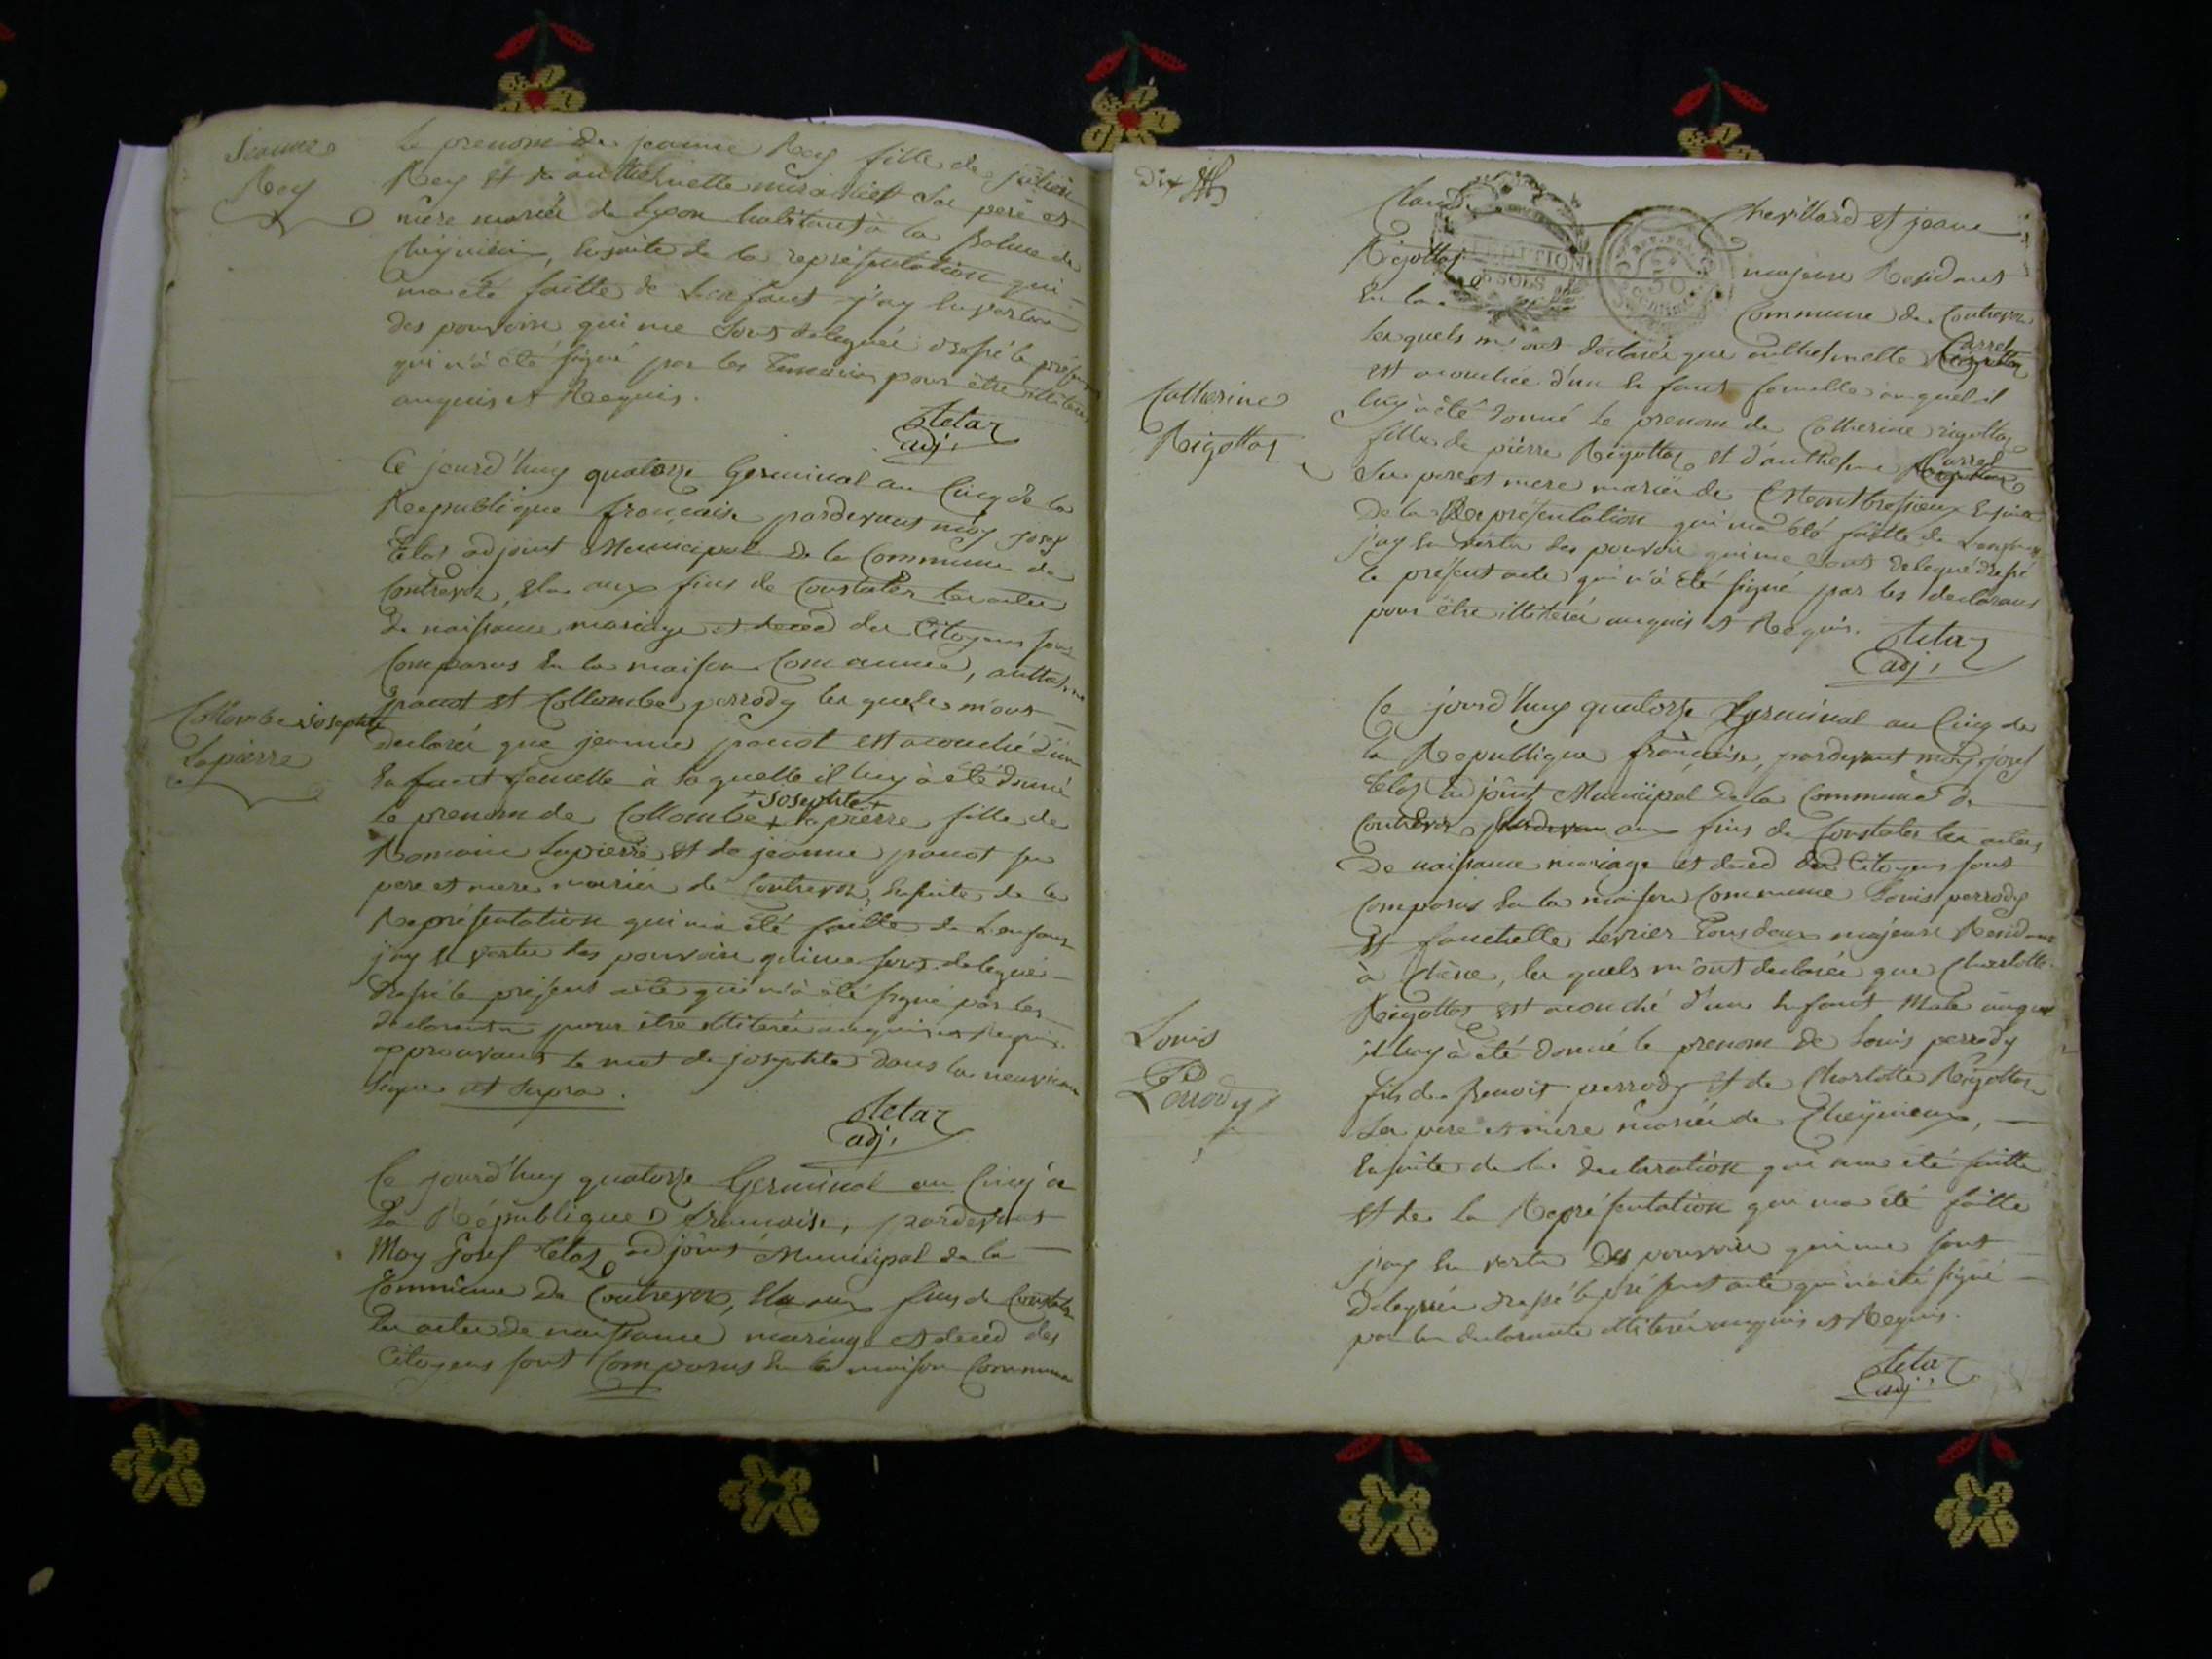 Jeanne
Rey
le prenom de jeanne Rey fille de julien
Rey et de anthelmette sa pere et
mere mariés de Lyon habitant à la Balme de
, Ensuite de la représentation qui
ma eté faitte de Lenfant j'ay En vertu
des pouvoirs qui me sont delegués dressé le présent
qui n'à été signé par les Temoins pour être illiterés
enquis et Requis.
Tetaz
adj.
Ce jourd'huy quatorze Germinal an Cinq de la
Republique francaise pardevant moy josef
Tetaz adjoint Municipal de la Commune de
Contrevoz, Elu aux fins de Constater les actes
de naissance mariage et deced des Citoyens sont
Comparus En la maison Commune, anthelme
panot et Collombe perrody les quels m'ont
Collombe josephte
Lapierre
declaré que jeanne panot est acouché d'un
Enfant femelle à la quelle il luy à été donné
le prenom de Collombe + josephte + lapierre fille de
Romain Lapierre et de jeanne panot sa
pere et mere mariés de Contrevoz, Ensuite de la
Représentation qui m'a été faitte de Lenfant
j'ay En vertu des pouvoirs qui me sont delegué
dressé le présent acte qui n'à été signé par les
declarants pour être illiterés enquis et Requis.
approuvant le mot de josephte dans la neuvieme
ligne et supra.
Tetaz
adj.
Ce jourd'huy quatorze Germinal an Cinq de
La République francaise, pardevant
Moy Josef Tetaz adjoint Municipal de la
Commune de Contrevoz, Elu aux fins de Constater
Les actes de naissance mariage et deced des
Citoyens sont Comparus En la maison Commune
dix
Claude Chevillard et jeane
Rigottaz majeurs Residants
En la Commune de Contrevoz
les quels m'ont déclarés que anthelmette Carrel
est acouchée d'un Enfant femelle au quel il
Catherine
Rigottaz
luy à été donné le prenom de Catherine rigottaz
fille de pierre Rigottaz et d'anthelme Carrel
Sa pere et mere mariés de Ensuite
De la Représentation qui ma été faitte de Lenfant
j'ay En vertu des pouvoirs qui me sont delegué dressé
le présent acte qui n'à été signé par les declarans
pour être illiterés enquis et Requis.
Tetaz
adj.
Ce jourd'huy quatorze germinal an Cinq de
la Republique française, pardevant moy josef
Tetaz adjoint Municipal de la Commune de
Contrevoz aux fins de Constater les actes
De naissance mariage et deced des Citoyens sont
Comparus En la maison Commune Louis perrody
et fanchette tous deux majeurs Residant
à , les quels m'ont declarés que Charlotte
Rigottaz est acouché d'un Enfant Male auquel
Louis
Perrody
il luy à été donné le prenom de Louis perrody
fils de Benoit perrody et de Charlotte Rigottaz
Sa pere et mere mariés de Cheÿnieux,
Ensuite de la declaration qui ma été faitte
et de La Représentation qui ma été faitte
j'ay En vertu des pouvoirs qui me sont
delegués dressé le présent acte qui n'a été signé
par les declarants illiterés enquis et Requis.
Tetaz
adj.